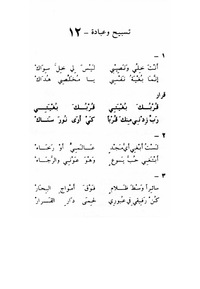 تسبيح وعبادة - ١٢
- ١
أنت خلي ونصيبي ليس لي خل سواك
إنما بغية نفسي يا مخلصي هداك
قرار
قربك بغيتي قربك بغيتي
رب زدني منك قربا كي أرى نور سناك
- ٢
لست أبغي أي مجد عالمي أو رخاء
أبتغي حب يسوع وهو عوني والرجاء
- ٣
سائرا وسط ظلام فوق أمواج البحار
كن رفيقي في عبوري لحمى دار القرار